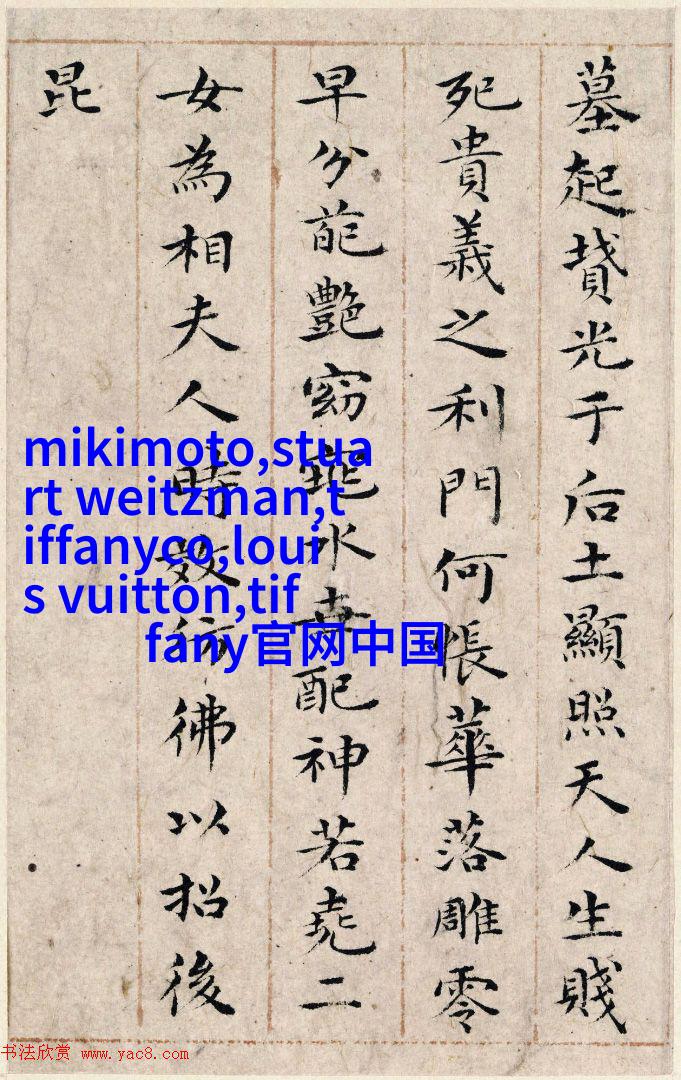 墓起墳光于后土顯照天人生賤
死貴義之利門何悵華落雕零
早分葩艷窈窕永世配神若堯二
女為相夫人時效彷彿以招後
昆
mikimoto,stua
rt weitzman,t
iffanyco,loui
s vuitton,tif
fany官网中国
书法欣赏 www.yac8.com